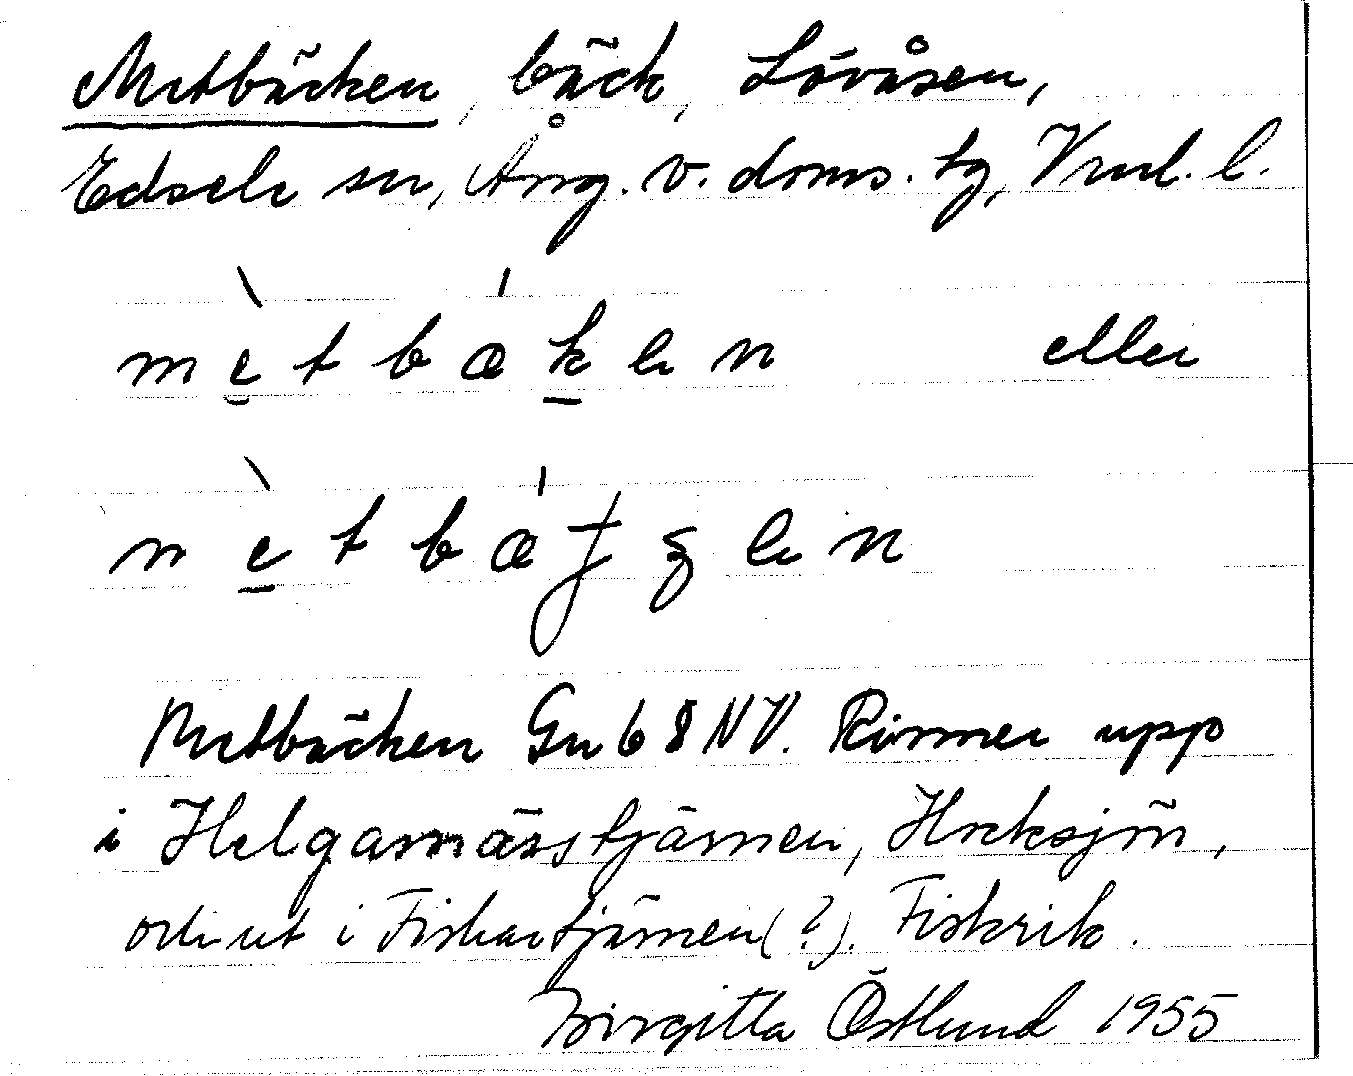 Metbäcken, bäck, Lövåsen,
Edsele sn, Ång. v. doms. tg, Vnl. l.
mètbæken eller
mètbæ
Metbäcken Gu 68 NV. Rinner upp
i Helgamässtjärnen, Hocksjön,
och ut i Fiskartjärnen (?). Fiskrik.
Birgitta Östlund 1955